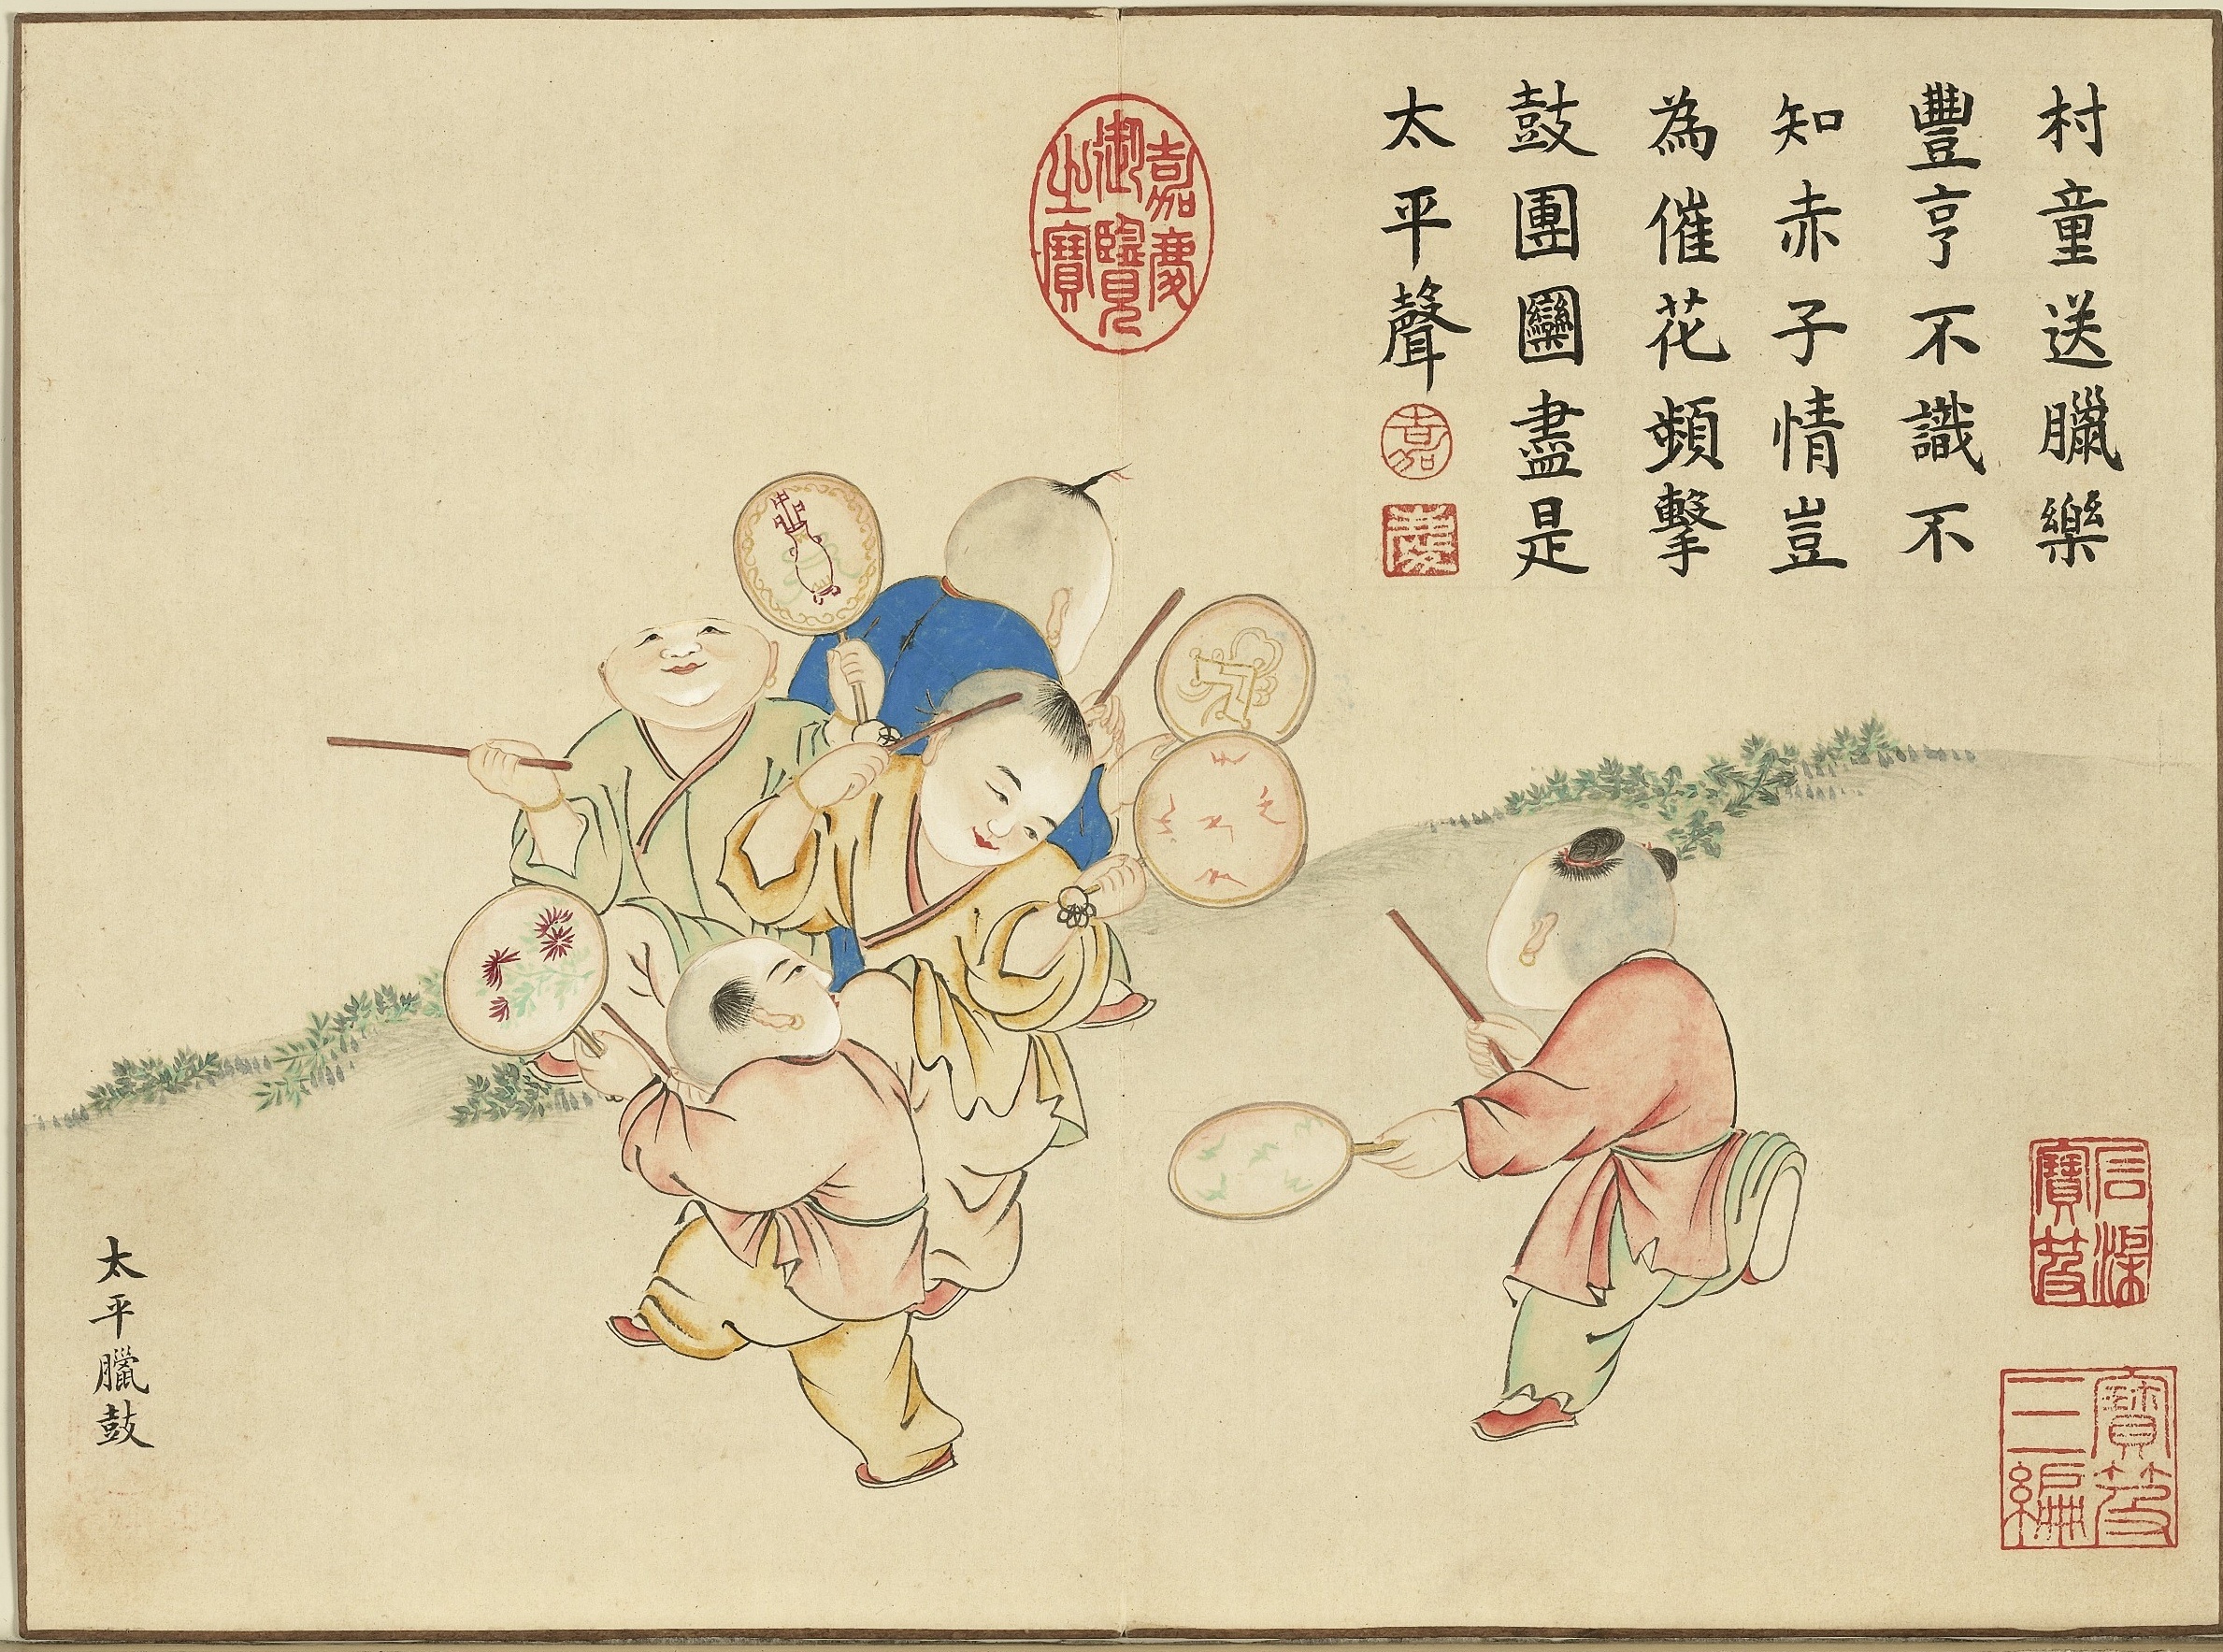 村童送臘樂
豐亨不識不
知赤子情豈
為催花頻擊
鼓團圞盡是
太平聲
嘉
慶
嘉慶
御覽
之寶
太平臘鼓
寶笈
三編